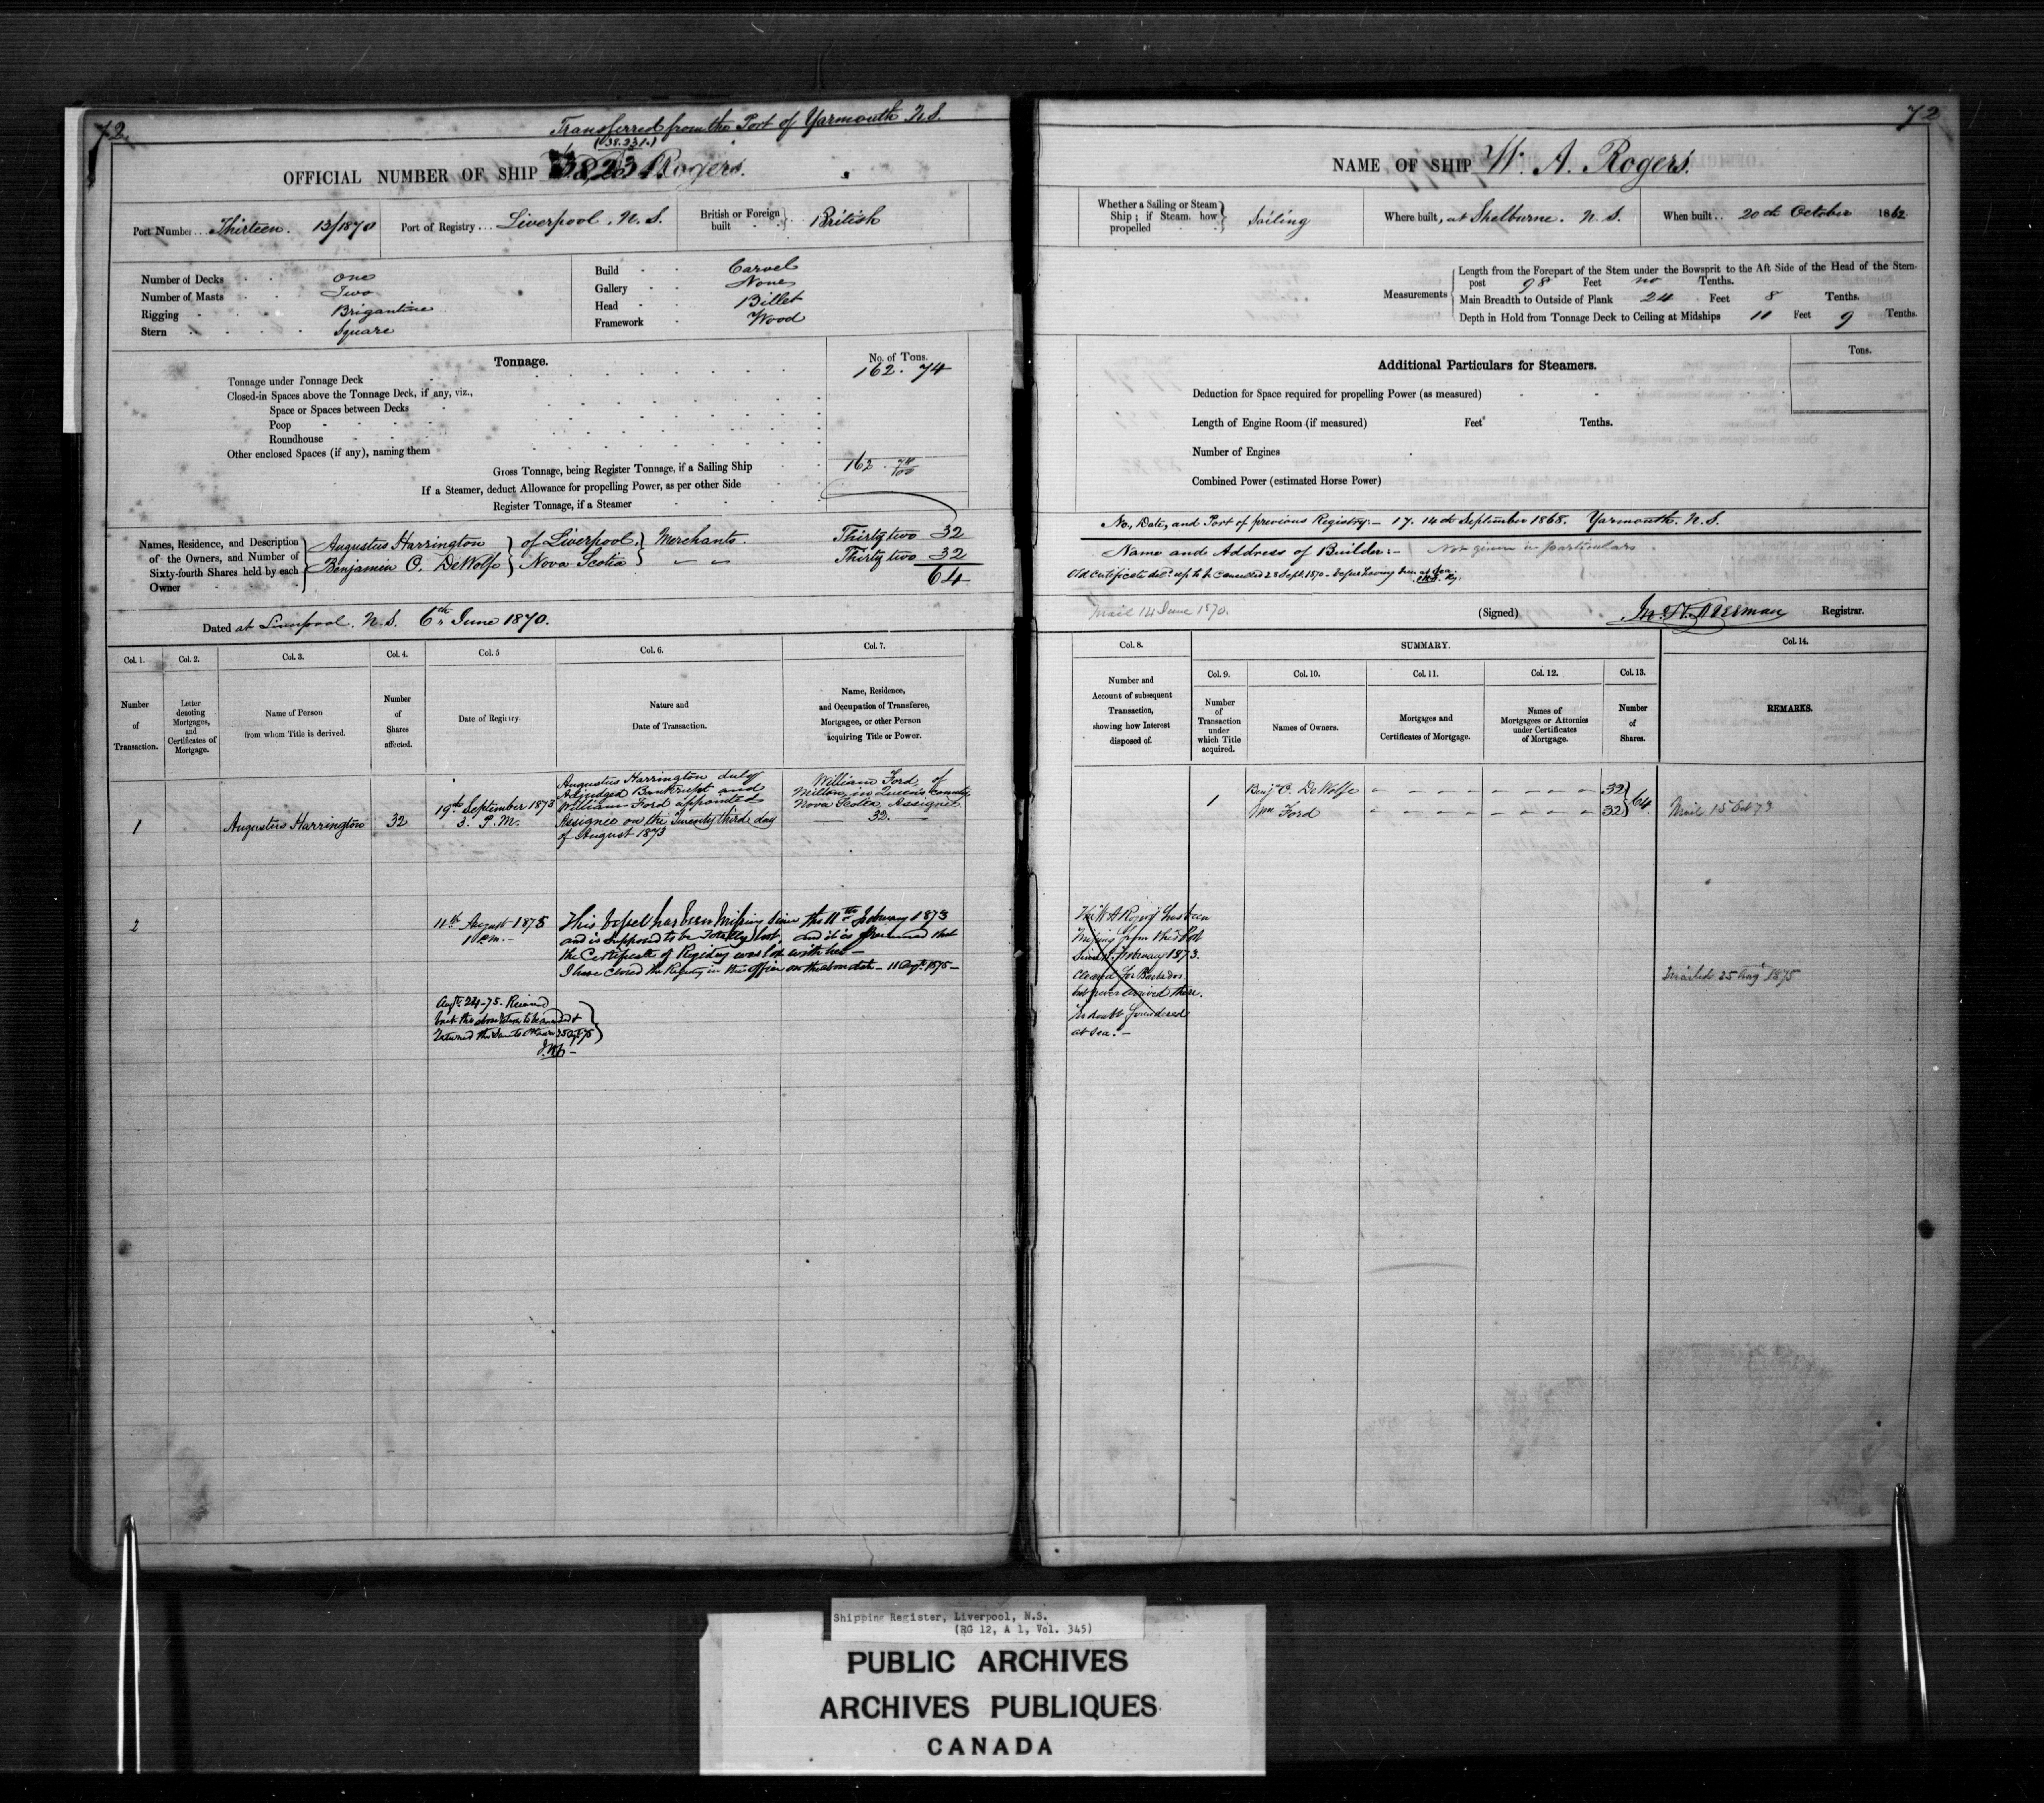 72
Transferred from the Port of Yarmouth N.S.
(38.231.)
OFFICIAL NUMBER OF SHIP 38,231 Rogers.
Port Number.. Thirteen. 13/1870
Port of Registry... Liverpool. N. S.
British or Foreign built } British
Number of Decks One
Number of Masts Two
Rigging Brigantine
Stern Square
Build Carvel
Gallery None
Head Billet
Framework Wood
Tonnage.
No. of Tons.
Tonnage under Tonnage Deck 162. 74
Closed-in Spaces above the Tonnage Deck, if any, viz.,
Space or Spaces between Decks
Poop
Roundhouse
Other enclosed Spaces (if any), naming them
Gross Tonnage, being Register Tonnage, if a Sailing Ship 162. 74/100
If a Steamer, deduct Allowance for propelling Power, as per other Side
Register Tonnage, if a Steamer
Names, Residence, and Description
of the Owners, and Number of
Sixty-fourth Shares held by each
Owner
Augustus Harrington } of Liverpool, } Merchants. Thirty two 32
Benjamin O. DeWolfe } Nova Scotia } " " Thirty two 32
64
Dated at Liverpool. N.S. 6th June 1870.
Col. 1. Col. 2. Col. 3. Col. 4. Col. 5 Col. 6. Col. 7.
Number of Transaction.
Letter denoting Mortgages, and Certificates of Mortgage.
Name of Person from whom Title is derived.
Number of Shares affected.
Date of Registry.
Nature and Date of Transaction.
Name, Residence, and Occupation of Transferee, Mortgagee, or other Person acquiring Title or Power.
1
Augustus Harrington
32
19th September 1873
3. P.M.
Augustus Harrington duly
Adjudged Bankrupt and
William Ford appointed
Assignee on the Twenty third day
of August 1873
William Ford, of
Milton, in Queen's County
Nova Scotia Assignee
32.
2
11th August 1875
1 P.M.
This vessel has been missing since the 11th February 1873
and is supposed to be Totally lost, and it is presumed that
the Certificate of Registry was lost with her
I have closed the Registry in this office on the above date - 11 Augt. 1875 -
Augt. 24-75. Received
back the above to be amended &
Returned the same to Ottawa 25 Augt 75
72
NAME OF SHIP W. A. Rogers.
Whether a Sailing or Steam
Ship; if Steam, how
propelled } Sailing
Where built, at Shelburne. N. S.
When built.. 20th October 1862
Measurements
Length from the Forepart of the Stem under the Bowsprit to the Aft Side of the Head of the Stern-
post 98 Feet no Tenths.
Main Breadth to Outside of Plank 24 Feet 8 Tenths.
Depth in Hold from Tonnage Deck to Ceiling at Midships 11 Feet 9 Tenths.
Additional Particulars for Steamers.
Tons.
Deduction for Space required for propelling Power (as measured)
Length of Engine Room (if measured) Feet Tenths.
Number of Engines
Combined Power (estimated Horse Power)
No, Date, and Port of previous Registry:- 17. 14th September 1868. Yarmouth. N.S.
Name and Address of Builder:- Not given in particulars
Old Certificate up to be cancelled 28 Sept. 1870 -
Mail 14 June 1870.
(Signed) Registrar.
Col. 8. SUMMARY. Col. 14.
Col. 9. Col. 10. Col. 11. Col. 12. Col. 13.
Number and Account of subsequent Transaction, showing how Interest disposed of.
Number of Transaction under which Title acquired.
Names of Owners.
Mortgages and Certificates of Mortgage.
Names of Mortgagees or Attornies under Certificates of Mortgage.
Number of Shares.
REMARKS.
1
Benjn. O. DeWolfe 32
Wm Ford 32 } 64.
Mail 15 Oct 73
The W A Rogers has been
missing from this Port
since February 1873.
Cleared for Barbados
but never arrived there.
No doubt foundered
at sea. -
Mailed 25 Aug 1875
Shipping Register, Liverpool, N.S.
(RG 12, A 1, Vol. 345)
PUBLIC ARCHIVES
ARCHIVES PUBLIQUES
CANADA